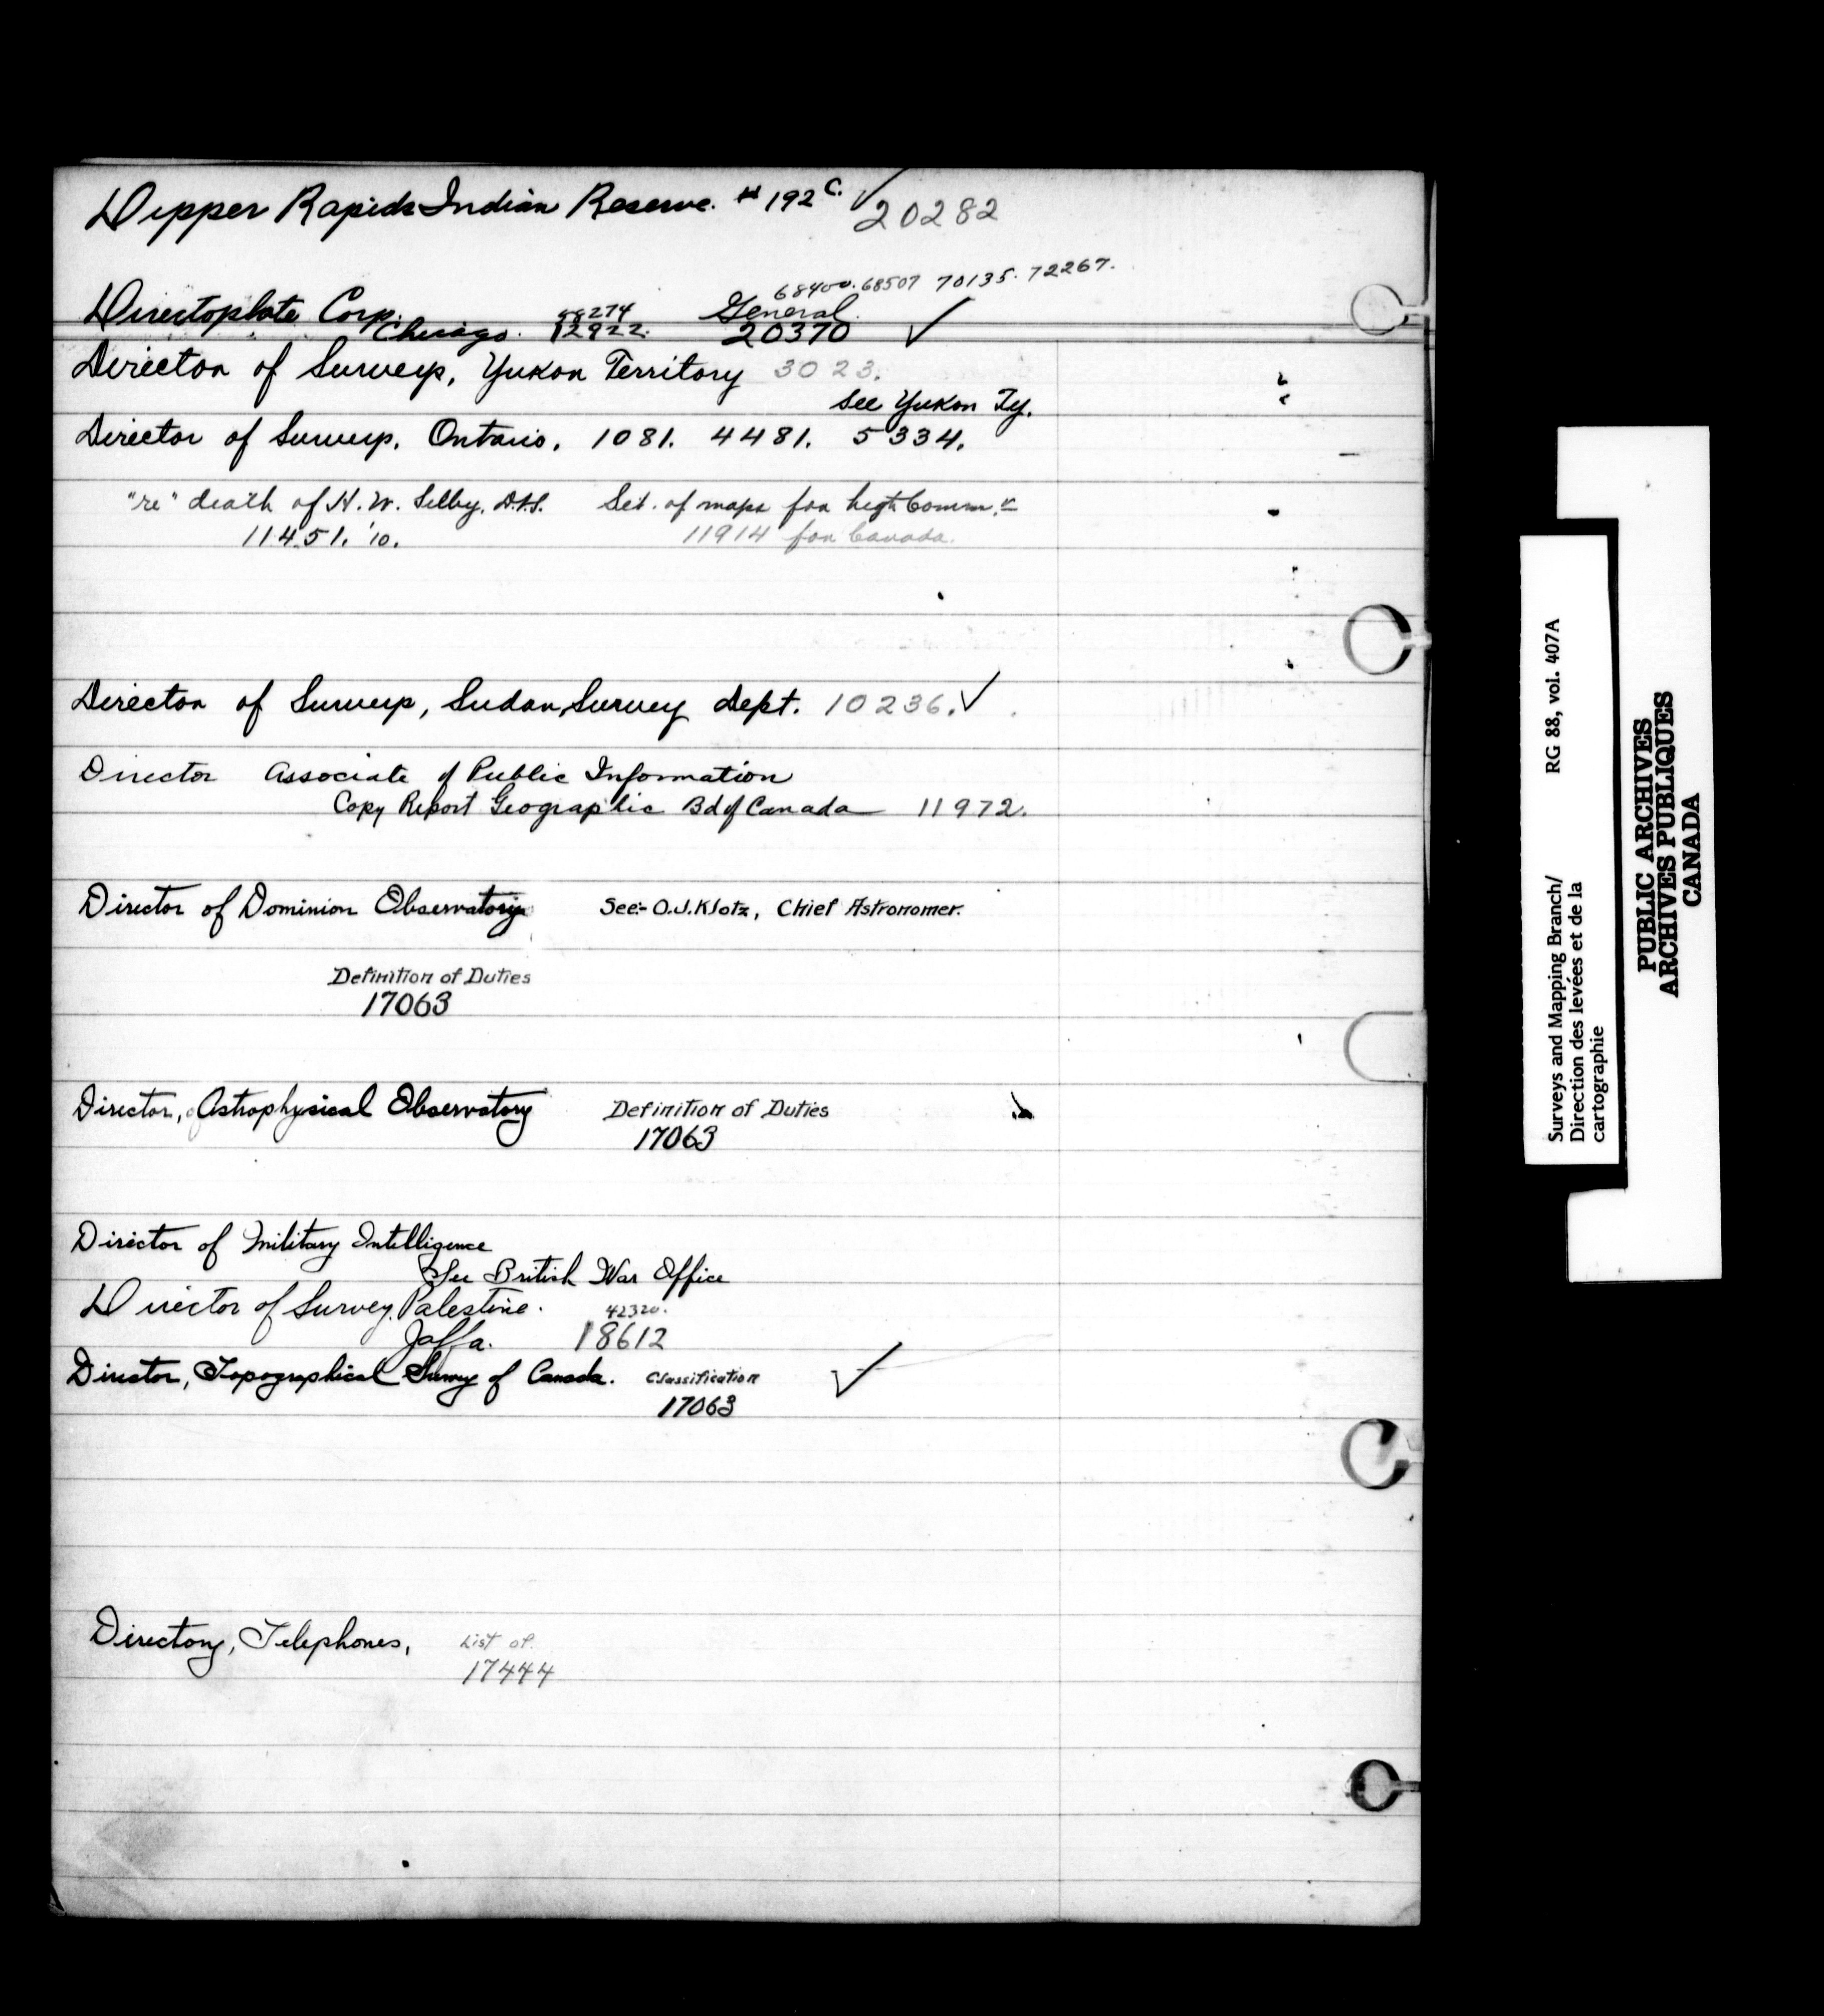 Dipper Rapids Indian Reserve. # 192 C. ✓ 20282
68400. 68507 70135. 72267.
Directoplate Corp. 68274 General.
Chicago. 12922. 20370 ✓
Director of Surveys, Yukon Territory 3023.
See Yukon Ty.
Director of Surveys, Ontario. 1081. 4481. 5334.
"re" death of H. W. Selby, D.L.S. Set. of maps for high Commr.
11451. '10. 11914 for Canada.
Director of Surveys, Sudan Survey Dept. 10236. ✓
Director Associate of Public Information
Copy Report Geographic Bd of Canada 11972.
Director of Dominion Observatory See:- O.J. Klotz, Chief Astronomer.
Definition of Duties
17063
Director, Astrophysical Observatory Definition of Duties
17063
Director of Military Intelligence
See British War Office
Director of Survey. Palestine. 42320.
Jaffa. 18612
Director, Topographical Survey of Canada. Classification ✓
17063
Directory, Telephones, List of.
17444
Surveys and Mapping Branch/ RG 88, vol. 407A
Direction des levées et de la
cartographie
PUBLIC ARCHIVES
ARCHIVES PUBLIQUES
CANADA